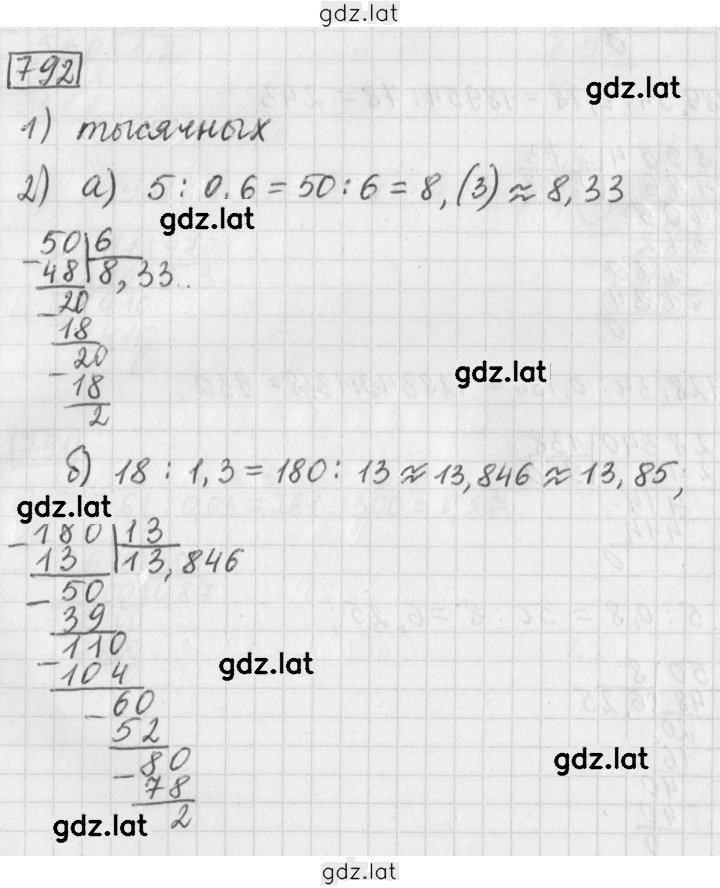 gdz.lat
792
gdz.lat
1) тысячных
2) а) 5 : 0,6 = 50 : 6 = 8,(3) ≈ 8,33
gdz.lat
50 6
- 48 8,33..
- 20
18
- 20
18
2
gdz.lat
б) 18 : 1,3 = 180 : 13 ≈ 13,846 ≈ 13,85;
gdz.lat
- 180 13
13 13,846
- 50
39
- 110
104
gdz.lat
- 60
52
- 80
78
2
gdz.lat
gdz.lat
gdz.lat